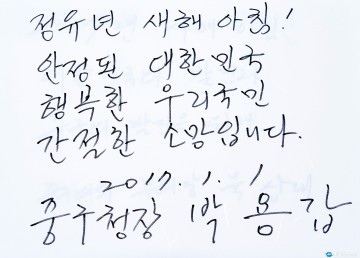 정유년 새해 아침!
안정된 대한민국
행복한 우리국민
간절한 소망입니다.
2017. 1. 1
중구청장 박용갑